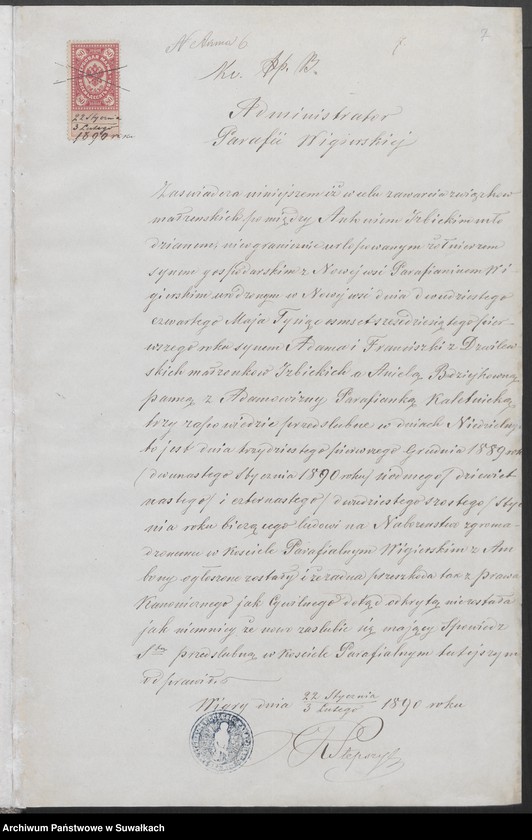 7
22 Stycznia
3 Lutego
1890 roku
Administrator
Parafii Wigierskiej
Zaświadcza niniejszem iż w celu zawarcia związków
małżeńskich pomiędzy Antonim Izbickim mło
dzianem, nieograniczenie urlopowanym żołnierzem
synem gospodarskim z Nowej wsi Parafianinem Wi
gierskim urodzonym w Nowej wsi dnia dwudziestego
czwartego Maja Tysiąc osmset sześćdziesiątego pier
wszego roku synem Adama i Franciszki z
małżonków Izbickich a Anielą
panną z Adamowizny Parafianką Kaletnicką
trzy zapowiedzie przedślubne w dniach Niedzielnych
to jest dnia trzydziestego pierwszego Grudnia 1889 roku
/dwunastego Stycznia 1890 roku/ siódmego/ dziewiet
nastego/ i czternastego/ dwudziestego szostego/ Stycz
nia roku bieżącego ludowi na Nabożeństwo zgroma
dzonemu w Kościele Parafialnym Wigierskim z Am
bony ogłoszone zostały i że żadna przeszkoda tak z prawa
Kanonicznego jak Cywilnego dotąd odkrytą nie została
jak niemniej że nowo zaślubić się mający Spowiedź
Stą przedślubną w Kościele Parafialnym tutejszym
odprawił
Wigry dnia 22 Stycznia / 3 Lutego 1890 roku
Archiwum Państwowe w Suwałkach